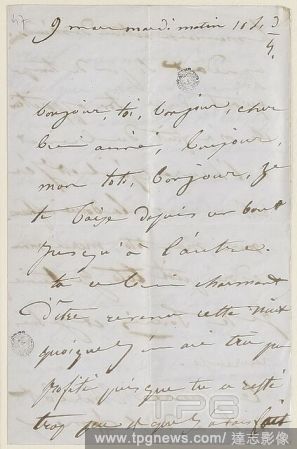 47
9 mars mardi matin 11 h. 3/4.
Bonjour, toi, bonjour, cher
bien aimé, bonjour,
mon toto, bonjour, je
te baise depuis un bout
jusqu'à l'autre.
tu es bien charmant
d'être revenu cette nuit
quoique j'en aie trop peu
profité puisque tu es resté
trop peu et que j'avais
TPG
www.tpgnews.com / 達志影像